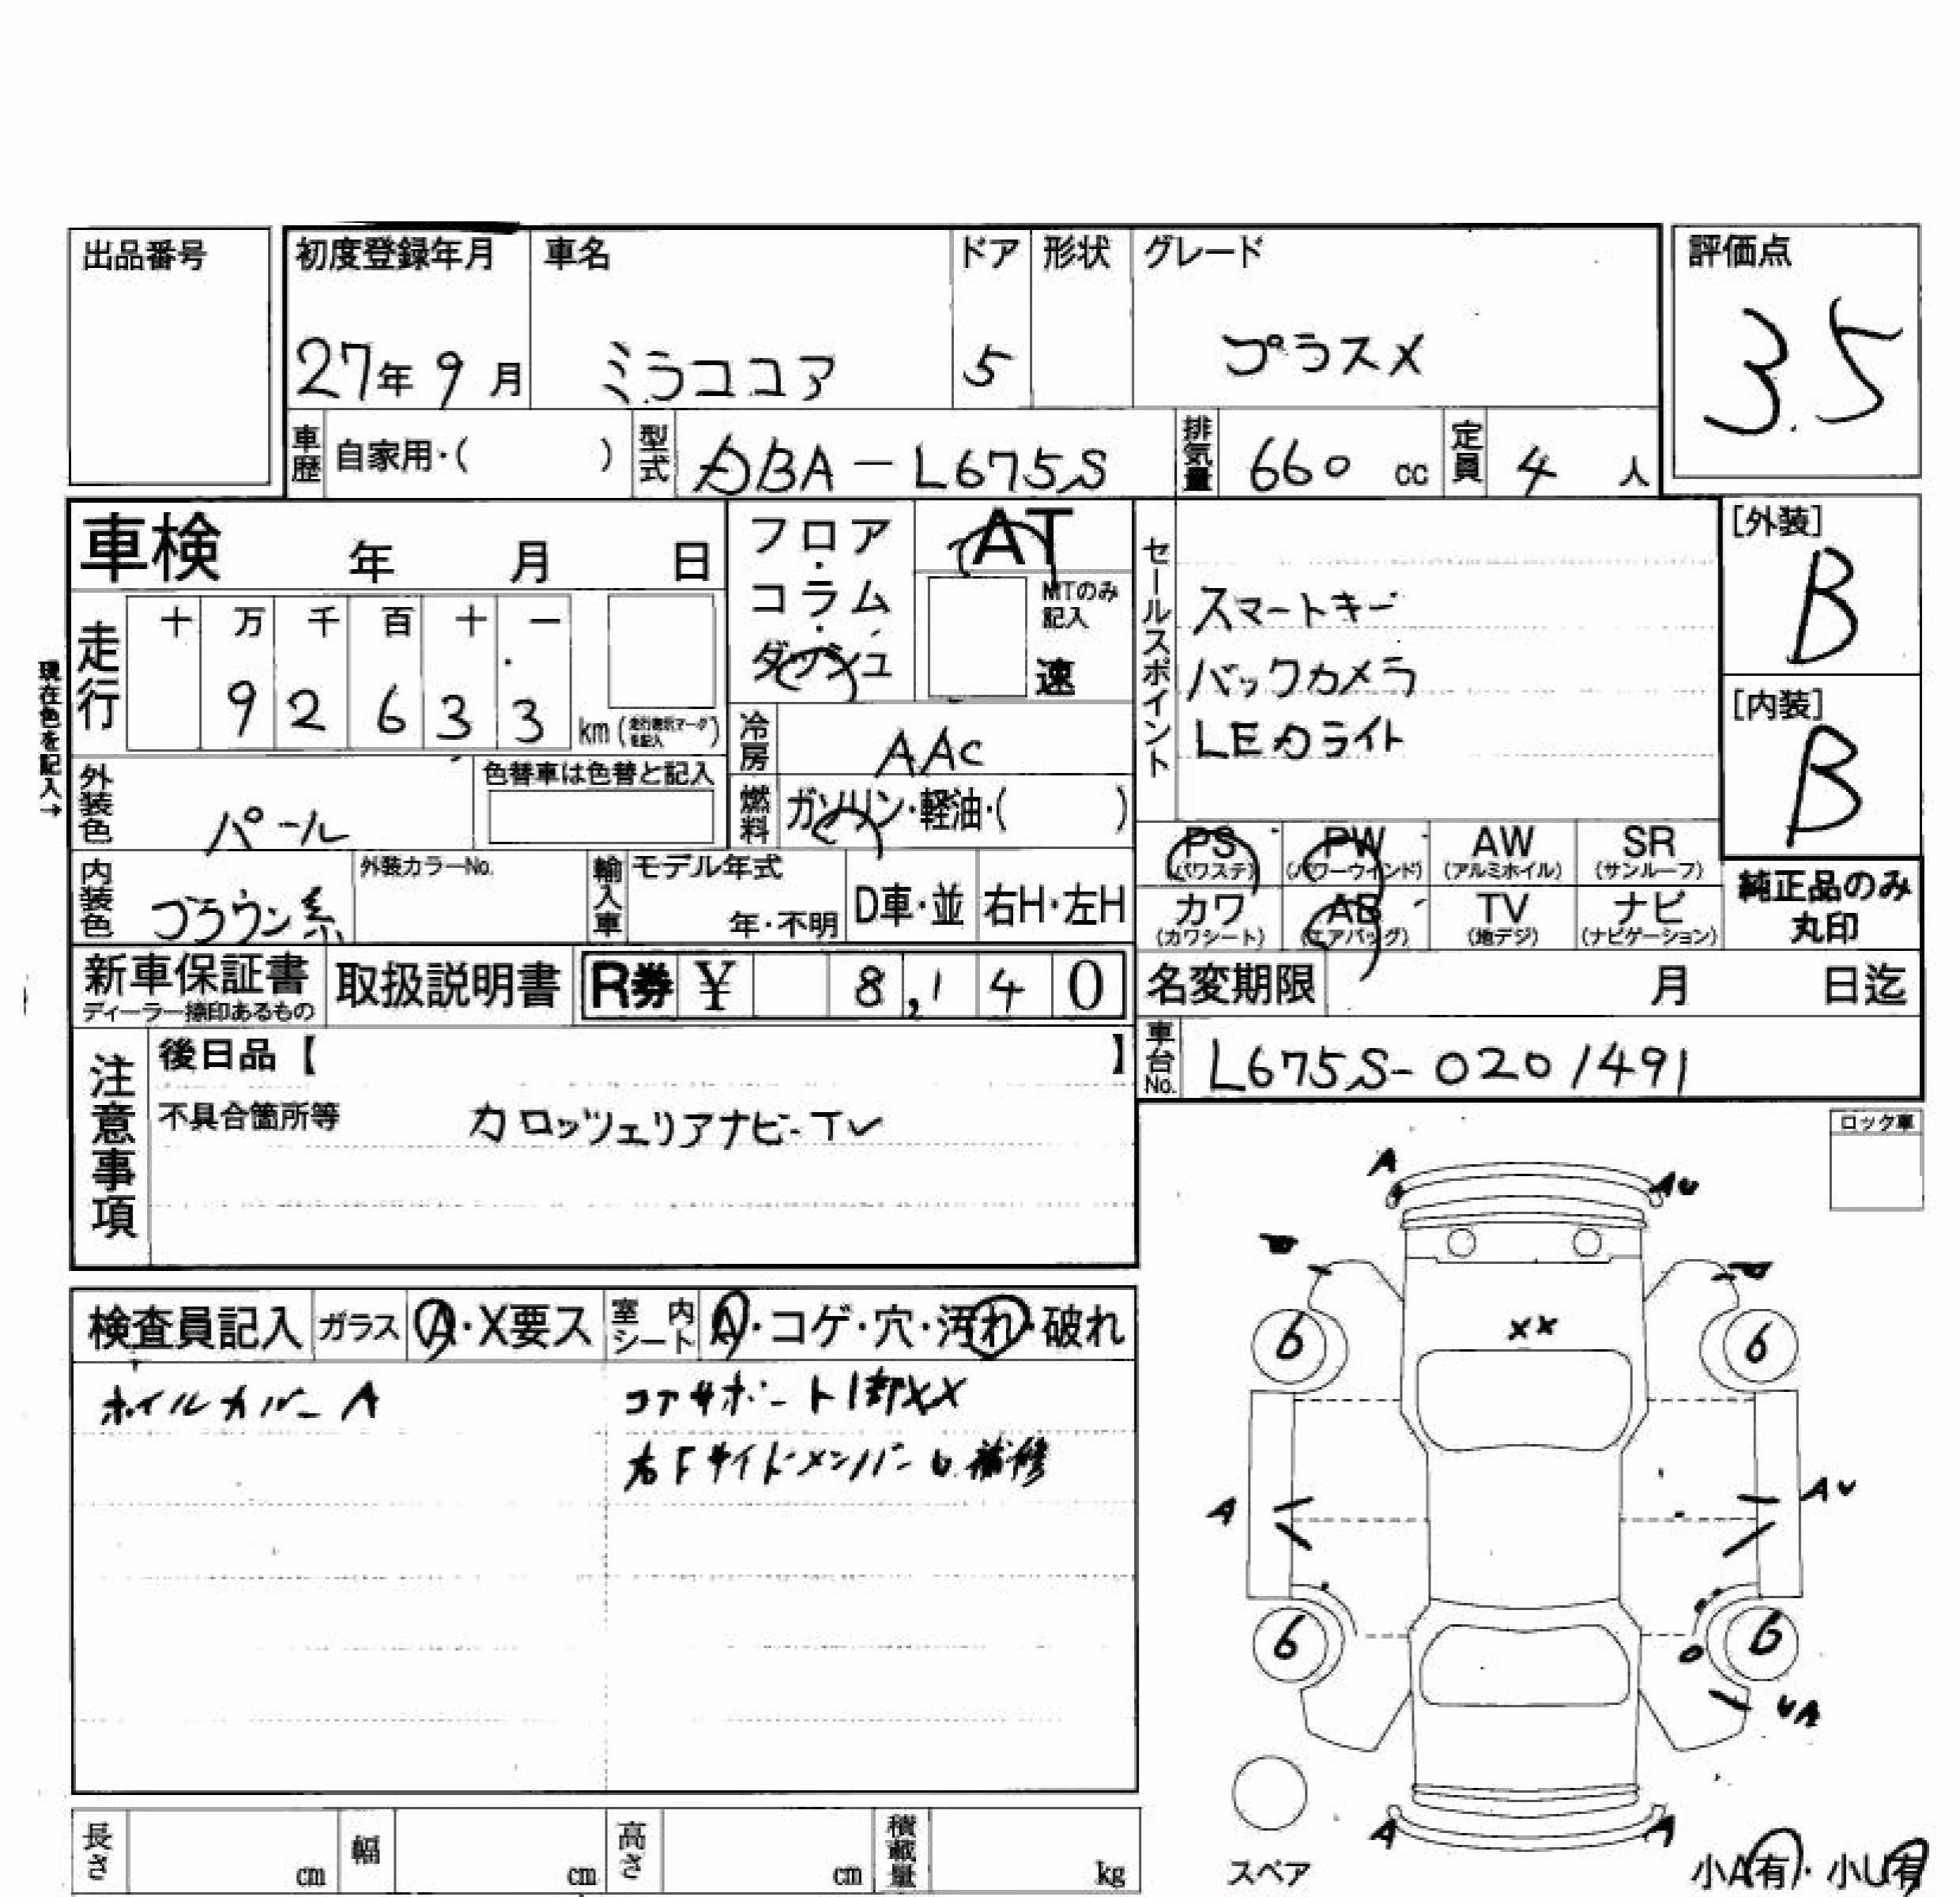 出品番号
初度登録年月 車名 ドア 形状 グレード 評価点
27年 9月 ミラココア 5 プラスX 3.5
車歴 自家用・( ) 型式 DBA-L675S 排気量 660 cc 定員 4 人
車検 年 月 日
フロア・コラム・ダッシュ
AT
MTのみ記入
速
セールスポイント
スマートキー
バックカメラ
LEDライト
[外装]
B
[内装]
B
現在色を記入→
走行 十 万 千 百 十 一
9 2 6 3 3 km
冷房 AAC
燃料 ガソリン・軽油・( )
外装色 パール 色替車は色替と記入
内装色 ブラウン系 外装カラーNo.
輸入車 モデル年式 年・不明 D車・並 右H・左H
PS (パワステ) PW (パワーウインド) AW (アルミホイル) SR (サンルーフ)
カワ (カワシート) AB (エアバッグ) TV (地デジ) ナビ (ナビゲーション)
純正品のみ丸印
新車保証書 ディーラー捺印あるもの 取扱説明書 R券 ¥ 8,140
名変期限 月 日迄
車台No. L675S-0201491
注意事項
後日品【 】
不具合箇所等 カロッツェリアナビ-TV
ロック車
検査員記入 ガラス A・X要ス 室内シート A・コゲ・穴・汚れ・破れ
ホイルカバーA
コアサポート1部XX
右FサイドメンバーU補修
A AU
XX
6 6
A AU
6 6
UA
A A
スペア
小A有・小U有
長さ cm 幅 cm 高さ cm 積載量 kg